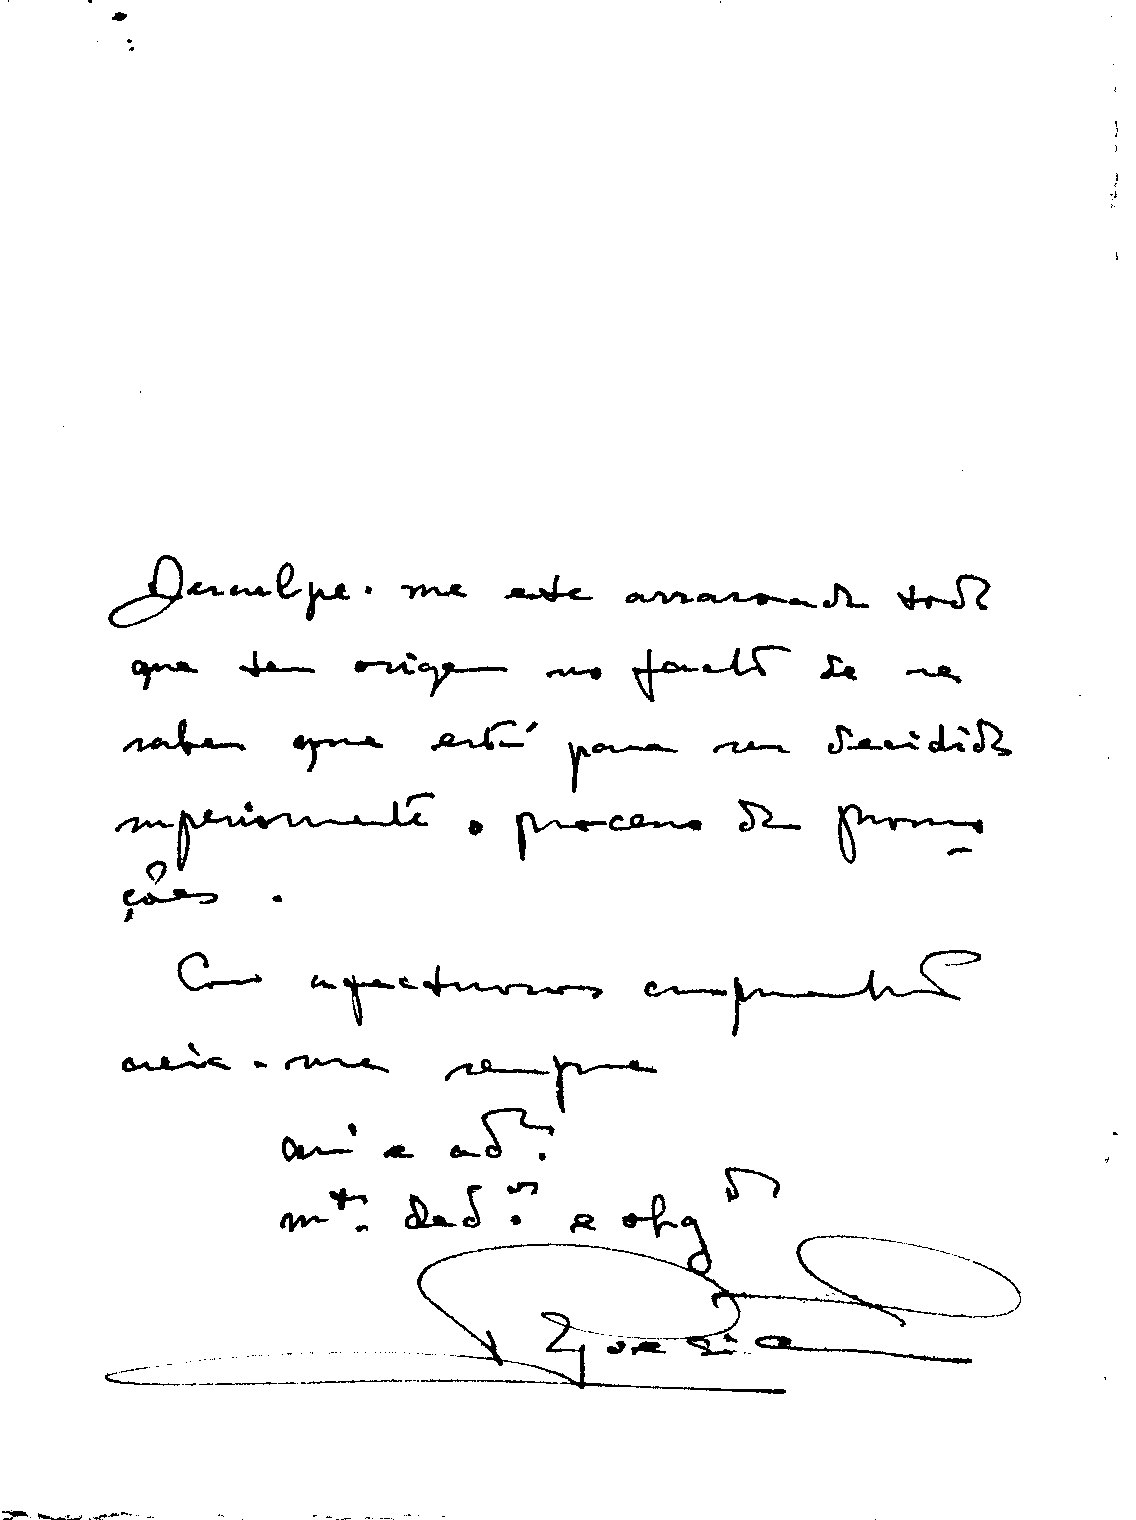 Desculpe-me este arrazoado todo
que tem origem no facto de se
saber que está para ser decidido
superiormente o processo da promo
ções.
Com afectuosos cumprimentos
creia-me sempre
am.º e ad.or
m.to ded.º e obg.do